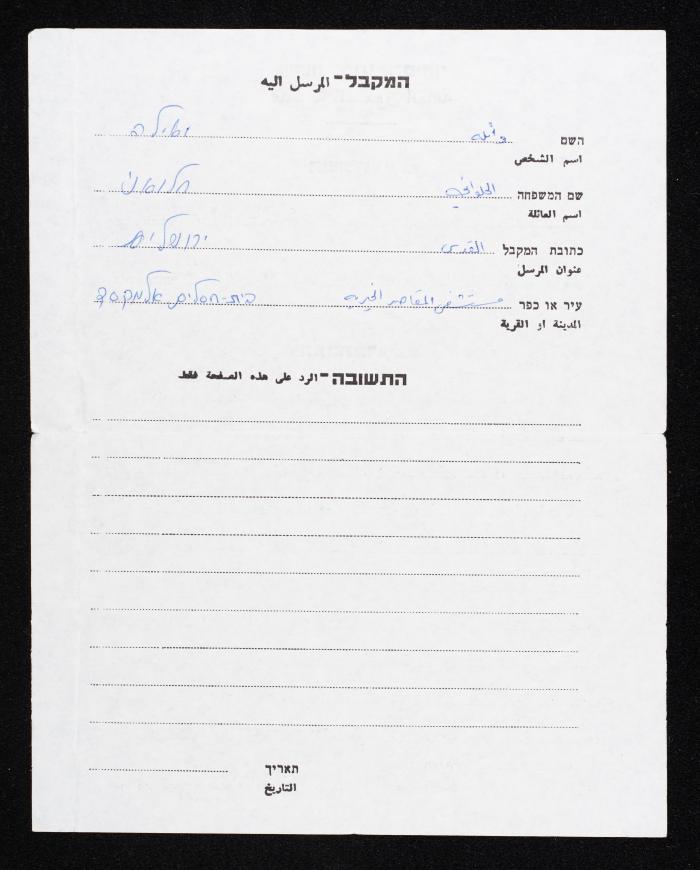 המקבל - المرسل اليه
השם وائله ואילה
اسم الشخص
שם המשפחה الحلواني חלואני
اسم العائلة
כתובת המקבל القدس ירושלים
عنوان المرسل
עיר או כפר مستشفى المقاصد الخيرية בית-חולים אלמקסד
المدينة او القرية
התשובה - الرد على هذه الصفحة فقط
תאריך
التاريخ